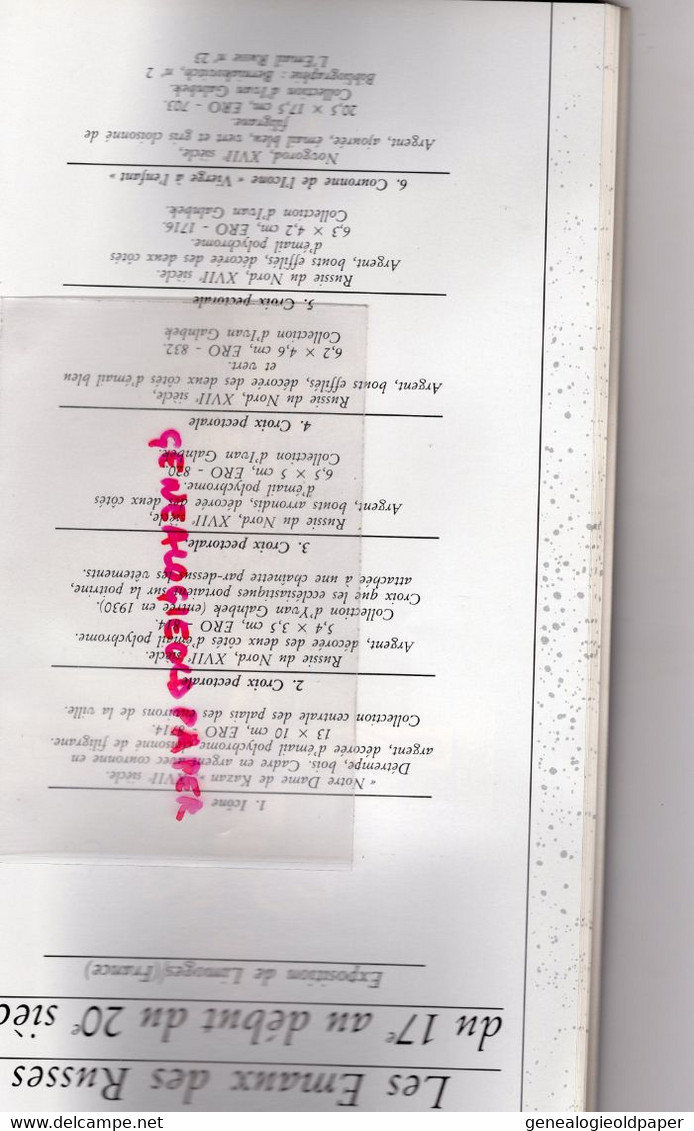 Les Emaux des Russes
du 17e au début du 20e siè
Exposition de Limoges (France)
1. Icône
« Notre Dame de Kazan » XVIIe siècle.
Détrempe, bois. Cadre en argent avec couronne en
argent, décorée d'émail polychrome cloisonné de filigrane.
13 × 10 cm, ERO
Collection centrale des palais des environs de la ville.
2. Croix pectorale
Russie du Nord, XVIIe siècle.
Argent, décorée des deux côtés d'émail polychrome.
5,4 × 3,5 cm, ERO - 814.
Collection d'Yvan Galnbek (entrée en 1930).
Croix que les ecclésiastiques portaient sur la poitrine,
attachée à une chaînette par-dessus les vêtements.
3. Croix pectorale,
Russie du Nord, XVIIe siècle,
Argent, bouts arrondis, décorée des deux côtés
d'émail polychrome.
6,5 × 5 cm, ERO - 820.
Collection d'Ivan Galnbek.
4. Croix pectorale
Russie du Nord, XVIIe siècle,
Argent, bouts effilés, décorée des deux côtés d'émail bleu
et vert.
6,2 × 4,6 cm, ERO - 832.
Collection d'Ivan Galnbek
5. Croix pectorale
Russie du Nord, XVIIe siècle.
Argent, bouts effilés, décorée des deux côtés
d'émail polychrome.
6,3 × 4,2 cm, ERO - 1716.
Collection d'Ivan Galnbek.
6. Couronne de l'Icone « Vierge à l'enfant »
Novgorod, XVIIe siècle,
Argent, ajourée, émail bleu, vert et gris cloisonné de
filigrane.
20,5 × 17,5 cm, ERO - 703.
Collection d'Ivan Galnbek.
Bibliographie : Berniakovitch, n° 2
L'Email Russe n° 23
GENEALOGIEOLD PAPER
www.delcampe.net
genealogieoldpaper